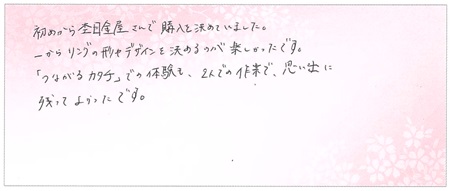 初めから杢目金屋さんで購入を決めていました。
一からリングの形やデザインを決めるのが楽しかったです。
「つながるカタチ」での体験も、2人での作業で、思い出に
残ってよかったです。